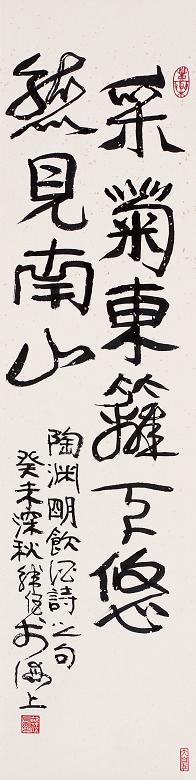 采菊東籬下悠
然見南山
陶渊明飲酒詩之句
癸未深秋於海上